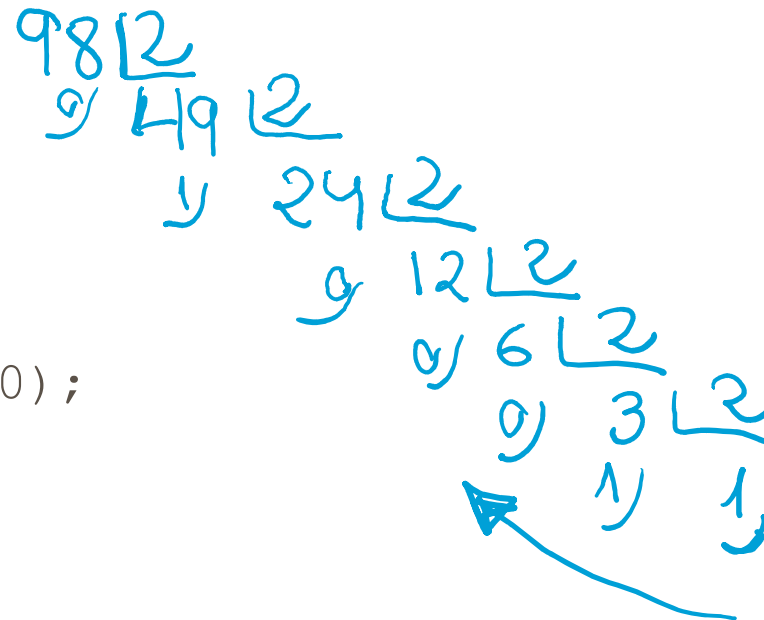 98 2
0) 49 2
1) 24 2
0) 12 2
0) 6 2
0);
0) 3 2
1) 1)